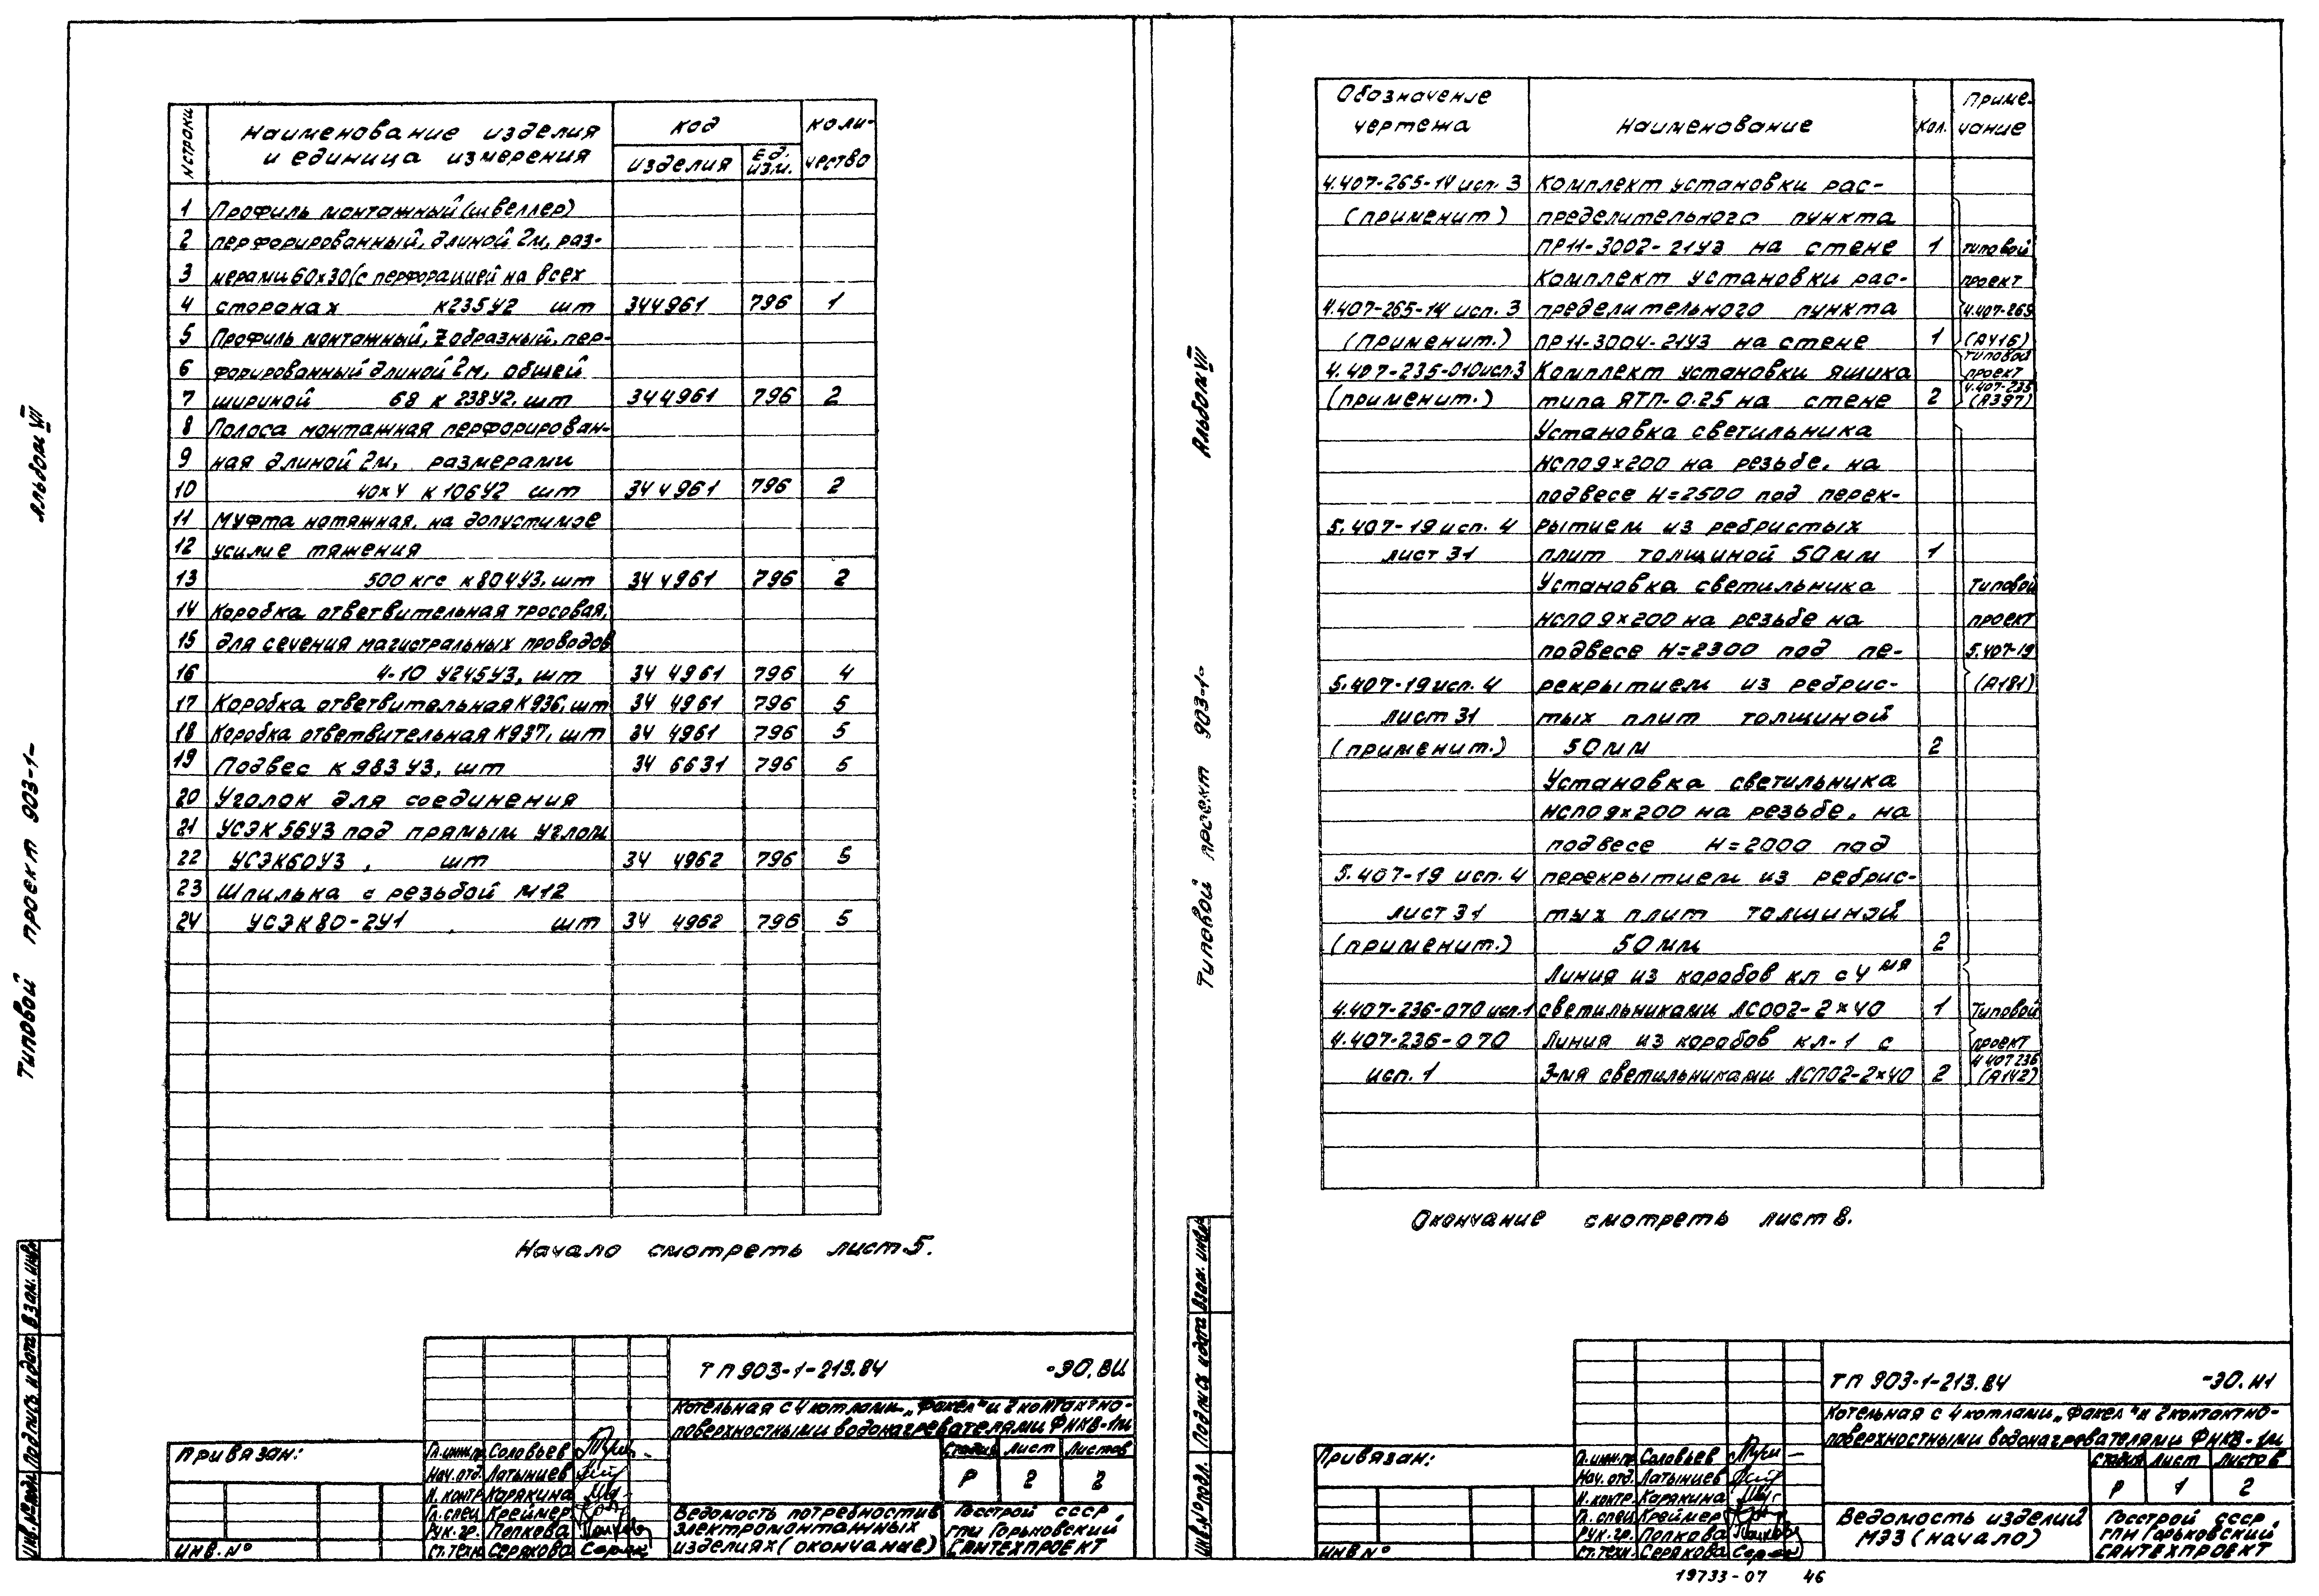 Альбом VII
Типовой проект 903-1-
N строки
Наименование изделия и единица измерения
код
изделия
Ед. изм.
коли-
чество
1 Профиль монтажный (швеллер)
2 перфорированный, длиной 2м, раз-
3 мерами 60×30 (с перфорацией на всех
4 сторонах К235У2 шт 344961 796 1
5 Профиль монтажный, Zобразный, пер-
6 форированный длиной 2м, общей
7 шириной 68 К 238У2, шт 344961 796 2
8 Полоса монтажная перфорирован-
9 ная длиной 2м, размерами
10 40×4 К106У2 шт 344961 796 2
11 Муфта натяжная, на допустимое
12 усилие тяжения
13 500 кгс К804У3, шт 344961 796 2
14 Коробка ответвительная тросовая,
15 для сечения магистральных проводов
16 4-10 У245У3, шт 34 4961 796 4
17 Коробка ответвительная К936, шт 34 4961 796 5
18 Коробка ответвительная К937, шт 34 4961 796 5
19 Подвес К983У3, шт 34 6631 796 5
20 Уголок для соединения
21 УСЭК56У3 под прямым углом
22 УСЭК60У3, шт 34 4962 796 5
23 Шпилька с резьбой М12
24 УСЭК80-2У1, шт 34 4962 796 5
Начало смотреть лист 5.
Взам. инв.№
Подпись и дата
Инв.№подл.
Привязан:
Инв. №
ТП 903-1-213.84 -ЭО.ВИ
Котельная с 4 котлами „Факел" и 2 контактно-
поверхностными водонагревателями ФНКВ-1м
Гл. инж. пр. Соловьев
Нач. отд. Латынцев
Н. контр. Карякина
Гл. спец. Креймер
Рук. гр. Попкова
Ст. техн. Серякова
Стадия Лист Листов
Р 2 2
Ведомость потребностив
электромонтажных
изделиях (окончание)
Госстрой СССР
ГПИ Горьковский
САНТЕХПРОЕКТ
Альбом VII
Типовой проект 903-1-
Обозначение чертежа
Наименование
Кол.
Приме-
чание
4.407-265-14 исп. 3 Комплект установки рас-
(применит) пределительного пункта
ПР11-3002-21У3 на стене 1 Типовой
Комплект установки рас- проект
4.407-265-14 исп. 3 пределительного пункта 4.407-265
(применит.) ПР11-3004-21У3 на стене 1 (А416)
Типовой
4.407-235-010 исп.3 Комплект установки ящика проект
4.407-235
(применит.) типа ЯТП-0.25 на стене 2 (А397)
Установка светильника
НСП09×200 на резьбе, на
подвесе Н=2500 под перек-
5.407-19 исп. 4 рытием из ребристых
лист 31 плит толщиной 50мм 1
Установка светильника Типовой
НСП09×200 на резьбе на проект
подвесе Н=2300 под пе- 5.407-19
5.407-19 исп. 4 рекрытием из ребрис- (А181)
лист 31 тых плит толщиной
(применит.) 50мм 2
Установка светильника
НСП09×200 на резьбе, на
подвесе Н=2000 под
5.407-19 исп. 4 перекрытием из ребрис-
лист 31 тых плит толщиной
(применит.) 50мм 2
Линия из коробов КЛ с 4мя
4.407-236-070 исп.1 светильниками ЛСО02-2×40 1 Типовой
4.407-236-070 Линия из коробов КЛ-1 с проект
4 407 236
исп. 1 3-мя светильниками ЛСП02-2×40 2 (А142)
Окончание смотреть лист 8.
Взам. инв.№
Подпись и дата
Инв.№подл.
Привязан:
Инв №
ТП 903-1-213.84 -ЭО.И1
Котельная с 4 котлами „Факел" и 2 контактно-
поверхностными водонагревателями ФНКВ-1м
Гл. инж. пр. Соловьев
Нач. отд. Латынцев
Н. контр. Карякина
Гл. спец. Креймер
Рук. гр. Попкова
Ст. техн. Серякова
Стадия Лист Листов
Р 1 2
Ведомость изделий
МЭЗ (начало)
Госстрой СССР
ГПИ Горьковский
САНТЕХПРОЕКТ
19733-07 46